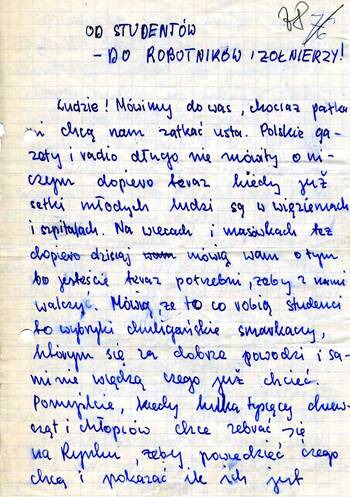 78 76
OD STUDENTÓW
- DO ROBOTNIKÓW I ŻOŁNIERZY!
Ludzie! Mówimy do was, chociaż pałka
mi chcą nam zatkać usta. Polskie ga-
zety i radio długo nie mówiły o ni-
czym dopiero teraz kiedy już
setki młodych ludzi są w więzieniach
i szpitalach. Na wiecach i masówkach też
dopiero dzisiaj mówią wam o tym
bo jesteście teraz potrzebni, żeby z nami
walczyć. Mówią, że to co robią studenci
to wybryki chuligańskie smarkaczy,
którym się za dobrze powodzi i sa-
mi nie wiedzą czego już chcieć.
Pomyślcie, kiedy kilka tysięcy dziew-
cząt i chłopców chce zebrać się
na Rynku, żeby powiedzieć czego
chcą i pokazać ile ich jest